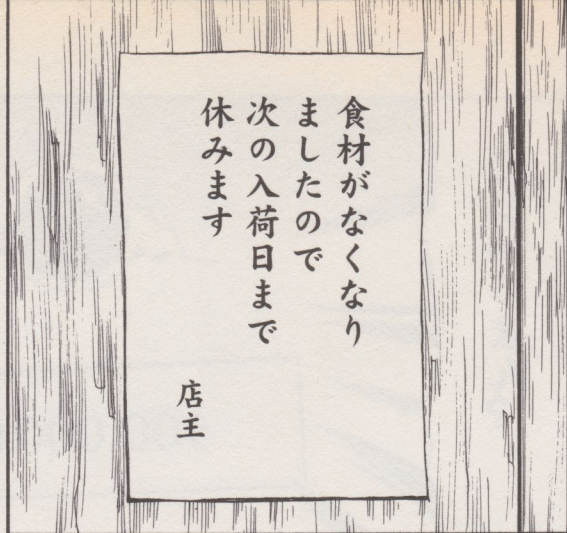 食材がなくなり
ましたので
次の入荷日まで
休みます
店主